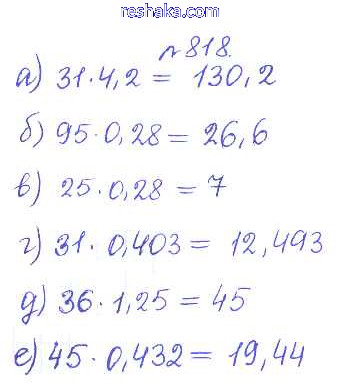 reshaka.com
№818.
а) 31·4,2 = 130,2
б) 95·0,28 = 26,6
в) 25·0,28 = 7
г) 31·0,403 = 12,493
д) 36·1,25 = 45
е) 45·0,432 = 19,44